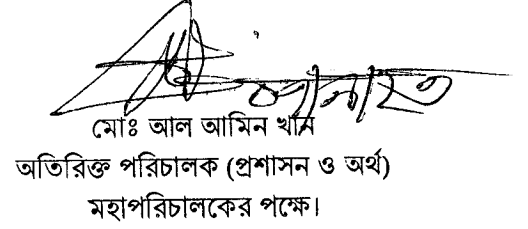 মোঃ আল আমিন খান
অতিরিক্ত পরিচালক (প্রশাসন ও অর্থ)
মহাপরিচালকের পক্ষে।